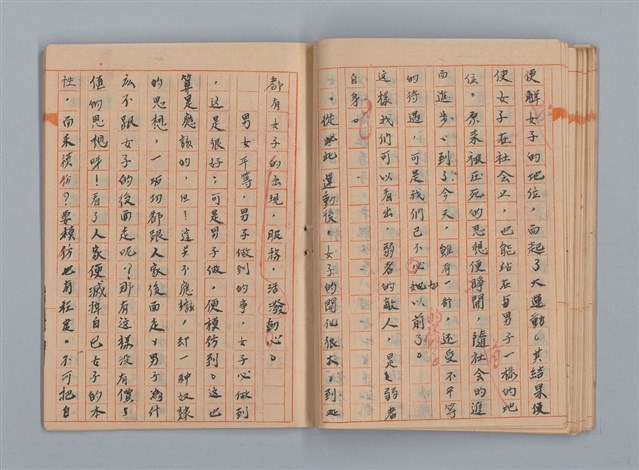 便解女子的地位，而起了大運動。其結果便
使女子在社會上，也能站在與男子一樣的地
位。原來被压死的思想便睜開，隨社會的進
而進步。到了今天，雖有一部，还受不平等
的待遇，可是我們已不必如以前了。
這樣我們可以看出，弱者的敵人，是弱者
自身。
。從此運動後，女子的開化很大，到处
都有女子的出現，服務，活潑動心。
男女平等，男子做到的事，女子必做到
，这是很好；可是男子做，便模仿到。这也
算是應該的，但！這並不應，却一种奴隸
的思想，一切切都跟人家後面走，男子為什
広不跟女子的後面走呢？那有這樣没有價
值的思想呀！看了人家便滅掉自己女子的本
性，而来模仿？要模仿也有程度，不可把自